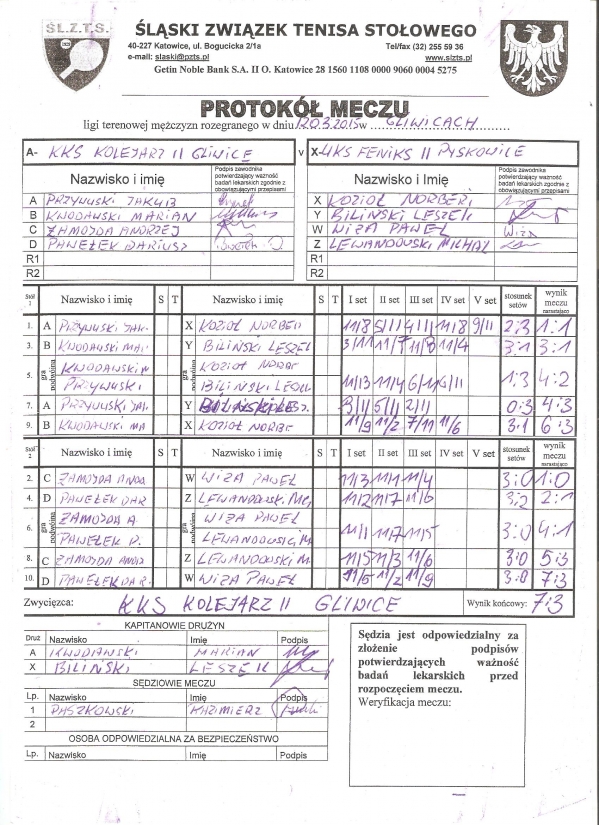 ŚL.Z.T.S.
ŚLĄSKI ZWIĄZEK TENISA STOŁOWEGO
40-227 Katowice, ul. Bogucicka 2/1a Tel/fax (32) 255 59 36
e-mail: slaski@pzts.pl www.slzts.pl
Getin Noble Bank S.A. II O. Katowice 28 1560 1108 0000 9060 0004 5275
PROTOKÓŁ MECZU
ligi terenowej mężczyzn rozegranego w dniu 12.03.2015 w GLIWICACH
A- KKS KOLEJARZ II GLIWICE v X- UKS FENIKS II PYSKOWICE
Nazwisko i imię Podpis zawodnika potwierdzający ważność badań lekarskich zgodnie z obowiązującymi przepisami Nazwisko i Imię Podpis zawodnika potwierdzający ważność badań lekarskich zgodnie z obowiązującymi przepisami
A PRZYWUSKI JAKUB X KOZIOŁ NORBERT
B KWODAWSKI MARIAN Y BILIŃSKI LESZEK
C ZAMOJDA ANDRZEJ W WIZA PAWEŁ
D PAWEŁEK DARIUSZ Z LEWANDOWSKI MICHAŁ
R1 R1
R2 R2
Stół 1 Nazwisko i imię S T Nazwisko i imię S T I set II set III set IV set V set stosunek setów wynik meczu narastająco
1. A PRZYWUSKI JAK. X KOZIOŁ NORBERT 11/8 5/11 4/11 11/8 9/11 2:3 1:1
3. B KWODAWSKI MAR Y BILIŃSKI LESZEK 3/11 11/7 11/8 11/4 3:1 3:1
5. gra podwójna KWODAWSKI M gra podwójna KOZIOŁ NORBE
PRZYWUSKI BILIŃSKI LESZEK 11/13 11/4 6/11 6/11 1:3 4:2
7. A PRZYWUSKI JAK. Y BILIŃSKI LESZ. 3/11 5/11 2/11 0:3 4:3
9. B KWODAWSKI MA X KOZIOŁ NORBE 11/9 11/2 7/11 11/6 3:1 6:3
Stół 2 Nazwisko i imię S T Nazwisko i imię S T I set II set III set IV set V set stosunek setów wynik meczu narastająco
2. C ZAMOJDA ANDR W WIZA PAWEŁ 11/3 11/4 11/4 3:0 1:0
4. D PAWEŁEK DAR Z LEWANDOWSKI MIC. 11/2 11/7 11/6 3:2 2:1
6. gra podwójna ZAMOJDA A. gra podwójna WIZA PAWEŁ
PAWEŁEK D. LEWANDOWSKI M 11/1 11/7 11/5 3:0 4:1
8. C ZAMOJDA ANDR Z LEWANDOWSKI M. 11/5 11/3 11/6 3:0 5:3
10. D PAWEŁEK DAR. W WIZA PAWEŁ 11/6 11/2 11/9 3:0 7:3
Zwycięzca: KKS KOLEJARZ II GLIWICE Wynik końcowy: 7:3
KAPITANOWIE DRUŻYN
Druż Nazwisko Imię Podpis
A KWODAWSKI MARIAN
X BILIŃSKI LESZEK
SĘDZIOWIE MECZU
Lp. Nazwisko Imię Podpis
1 PASZKOWSKI KAZIMIERZ
2
OSOBA ODPOWIEDZIALNA ZA BEZPIECZEŃSTWO
Lp. Nazwisko Imię Podpis
Sędzia jest odpowiedzialny za
złożenie podpisów
potwierdzających ważność
badań lekarskich przed
rozpoczęciem meczu.
Weryfikacja meczu: